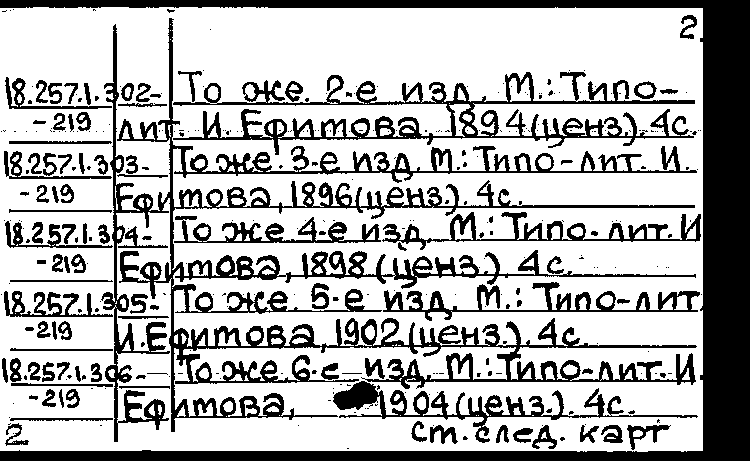 2.
18.257.1.302- То же. 2-е изд. М.: Типо-
-219 лит. И. Ефимова, 1894(ценз.). 4с.
18.257.1.303- То же. 3-е изд. М.: Типо-лит. И.
-219 Ефимова, 1896(ценз.). 4с.
18.257.1.304- То же 4-е изд. М.: Типо-лит. И
-219 Ефимова, 1898 (ценз.). 4с.
18.257.1.305- То же. 5-е изд. М.: Типо-лит.
-219 И.Ефимова, 1902(ценз.). 4с.
18.257.1.306- То же. 6-е изд. М.: Типо-лит. И.
-219 Ефимова, 1904(ценз.). 4с.
2 ст. след. карт